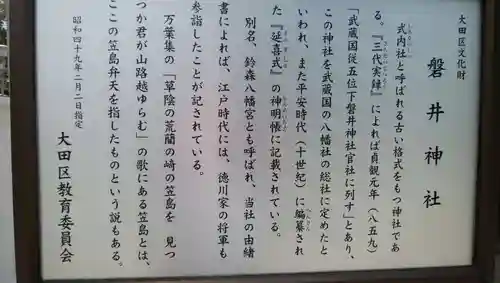 大田区文化財
磐井神社
式内社と呼ばれる古い格式をもつ神社であ
る。『三代実録』によれば貞観元年（八五九）
「武蔵国従五位下磐井神社官社に列す」とあり、
この神社を武蔵国の八幡社の総社に定めたと
いわれ、また平安時代（十世紀）に編纂され
た『延喜式』の神明帳に記載されている。
別名、鈴森八幡宮とも呼ばれ、当社の由緒
書によれば、江戸時代には、徳川家の将軍も
参詣したことが記されている。
万葉集の「草陰の荒藺の崎の笠島を　見つ
つか君が山路越ゆらむ」の歌にある笠島とは、
ここの笠島弁天を指したものという説もある。
昭和四十九年二月二日指定
大田区教育委員会